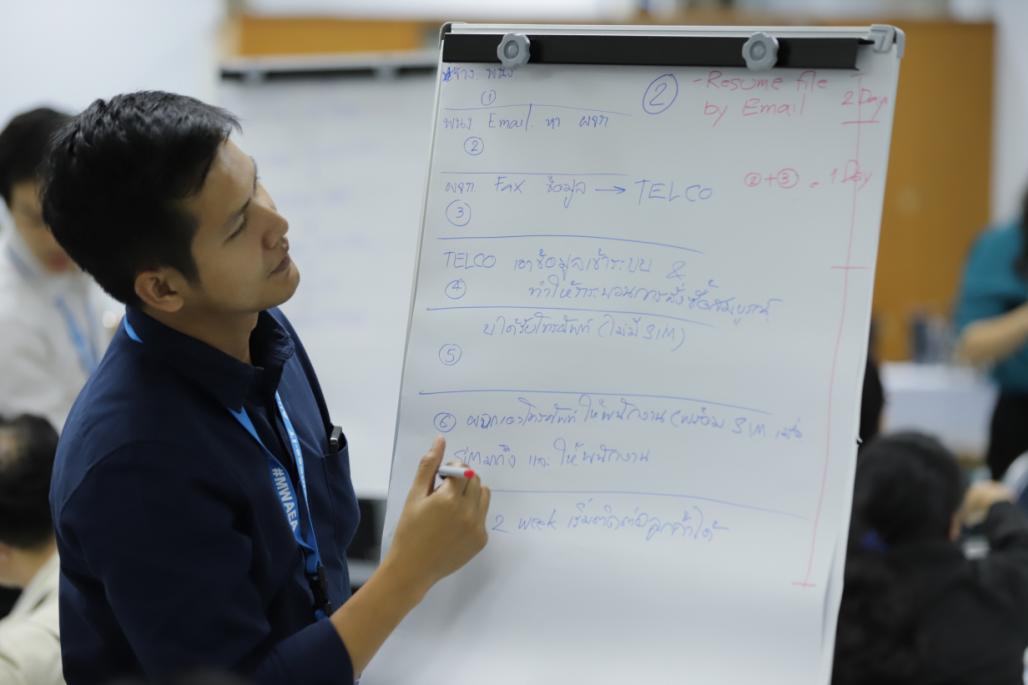 จ้าง พนง
①
พนง Email หา ผจก
②
ผจก Fax ข้อมูล → TELCO
③
TELCO เอาข้อมูลเข้าระบบ &
④ ทำให้กระบวนการสั่งซื้อสมบูรณ์
ได้รับโทรศัพท์ (ไม่มี SIM)
⑤
⑥ ผจกเอาโทรศัพท์ให้พนักงาน (พร้อม SIM เมื่อ
SIM มาถึง และ ให้พนักงาน
2 week เริ่มติดต่อลูกค้าได้
②
- Resume file
by Email
2 Day
②+③ = 1 Day
#MWAEA